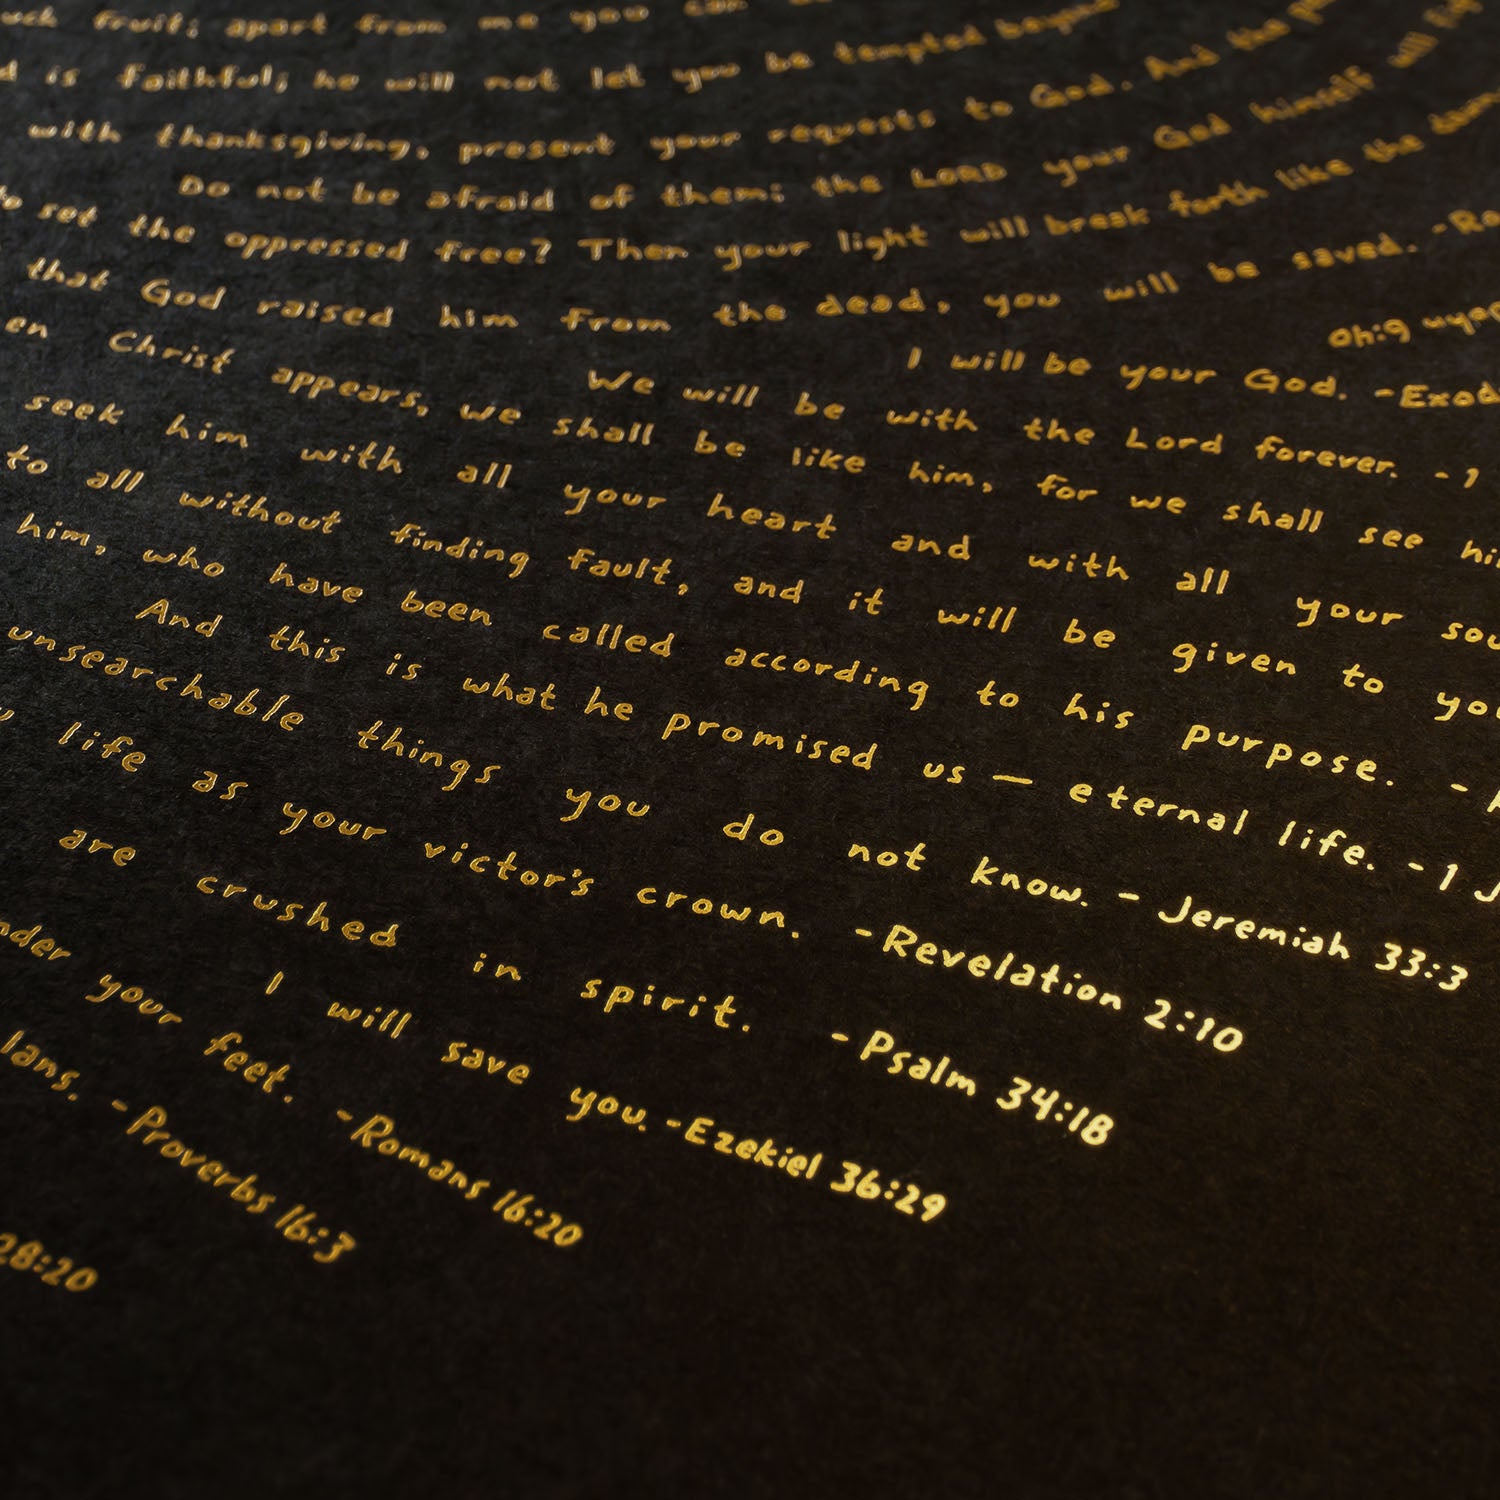 fruit; apart from me you can
is faithful; he will not let you be tempted beyond
with thanksgiving, present your requests to God. And the
Do not be afraid of them; the LORD your God himself will
to set the oppressed free? Then your light will break forth like the
that God raised him from the dead, you will be saved. -Ro
I will be your God. -Exod
Christ appears, We will be with the Lord forever. -1
seek him we shall be like him, for we shall see him
to all with all your heart and with all your sou
him, without finding fault, and it will be given to you
who have been called according to his purpose. -
And this is what he promised us — eternal life. -1 J
unsearchable things you do not know. - Jeremiah 33:3
life as your victor's crown. -Revelation 2:10
are crushed in spirit. -Psalm 34:18
I will save you. -Ezekiel 36:29
nder your feet. -Romans 16:20
lans. -Proverbs 16:3
28:20